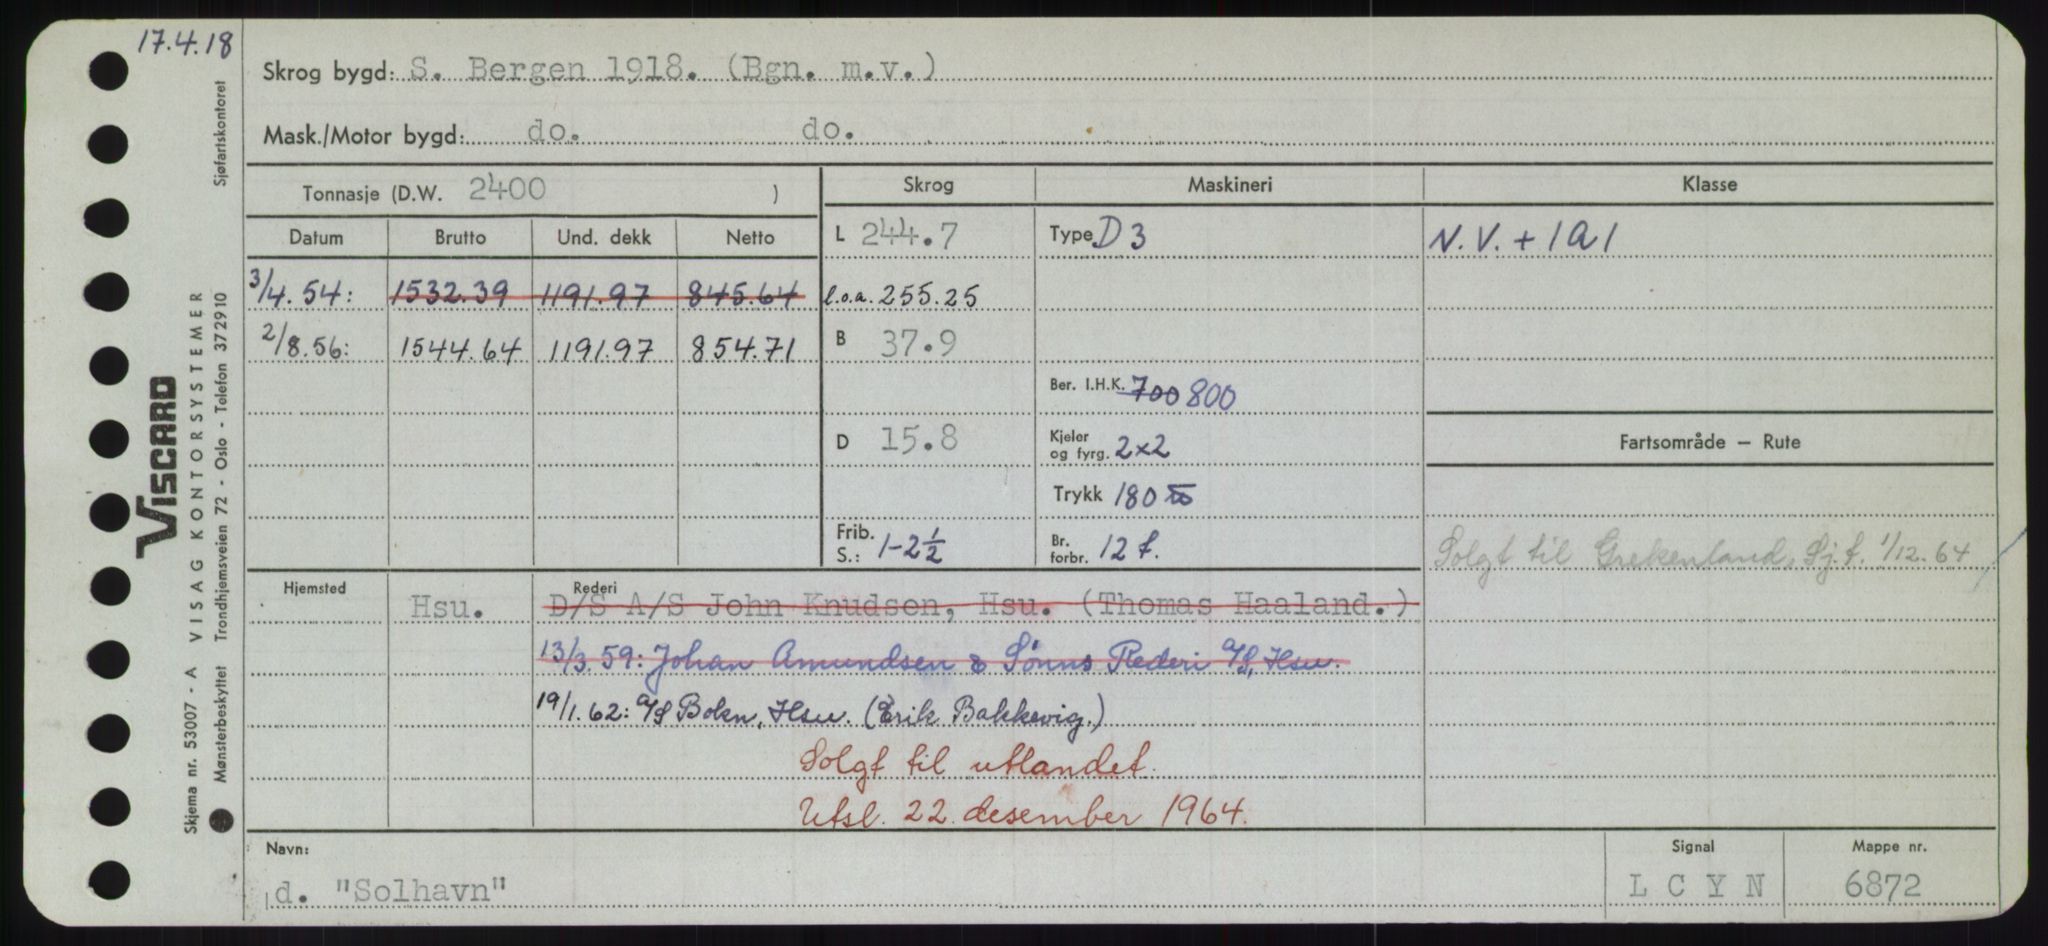 17.4.18
Skrog bygd: S. Bergen 1918. (Bgn. m.v.)
Mask./Motor bygd: do. do.
Tonnasje (D.W. 2400 )
Datum Brutto Und. dekk Netto
3/4.54: 1532.39 1191.97 845.64
2/8.56: 1544.64 1191.97 854.71
Skrog
L 244.7
l.o.a. 255.25
B 37.9
D 15.8
Frib. S.: 1-2½
Maskineri
Type D 3
Ber. I.H.K. 700 800
Kjeler og fyrg. 2x2
Trykk 180
Br. forbr. 12 t.
Klasse
N.V. + 1A1
Fartsområde – Rute
Solgt til Grekenland, Sj.f. 1/12.64
Hjemsted
Hsu.
Rederi
D/S A/S John Knudsen, Hsu. (Thomas Haaland.)
13/3.59: Johan Amundsen & Sønns Rederi A/S, Hsu.
19/1.62: A/S Bokn, Hsu. (Erik Bakkevig.)
Solgt til utlandet.
Utsl. 22. desember 1964.
Navn:
d. "Solhavn"
Signal
L C Y N
Mappe nr.
6872
Viscard
Skjema nr. 53007 - A VISAG KONTORSYSTEMER
Mønsterbeskyttet Trondhjemsveien 72 - Oslo - Telefon 372910 Sjøfartskontoret